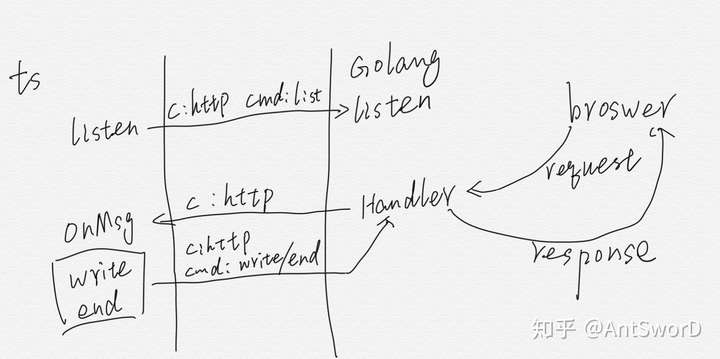 ts
Golang
c:http cmd:list
listen
listen
broswer
request
c:http
Handler
onMsg
c:http
cmd: write/end
write
end
response
知乎 @AntSworD